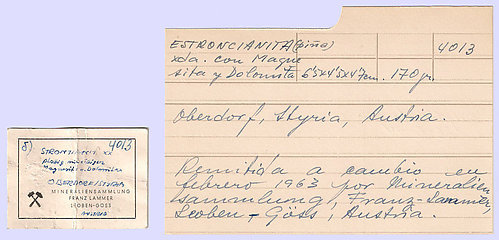 8) STRONTIANIT xx 4013
Magnesit u. Dolomites
OBERDORF/STYRIA
MINERALIENSAMMLUNG
FRANZ LAMMER
LEOBEN-GÖSS
AUSTRIA
ESTRONCIANITA (piña) 4013
xda. con Magne
sita y Dolomita 6'5x4'5x4'7cm. 170 gr.
Oberdorf, Styria, Austria.
Remitida a cambio en
febrero 1963 por Mineralien
sammlung, Franz-Lammer,
Leoben-Göss, Austria.